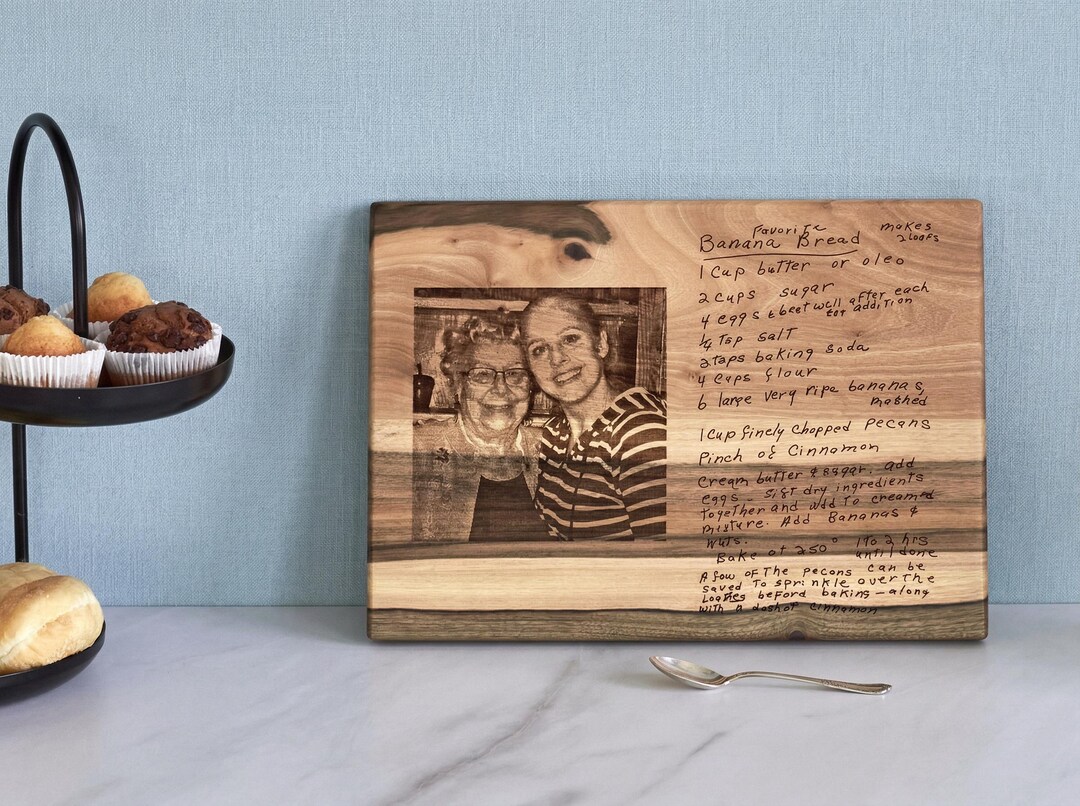 Favorite
Banana Bread
makes
2 loafs
1 Cup butter or oleo
2 cups sugar
4 eggs & beet well after each
addition
1/4 Tsp salt
2 tsps baking soda
4 Cups flour
6 large very ripe bananas,
mashed
1 Cup finely chopped Pecans
Pinch of Cinnamon
Cream butter & sugar. add
eggs - sift dry ingredients
together and add to creamed
mixture. Add Bananas &
nuts.
Bake at 250° 1 to 2 hrs
until done
A few of The pecons can be
saved To sprinkle over The
Loaves before baking - along
with a dash of cinnamon